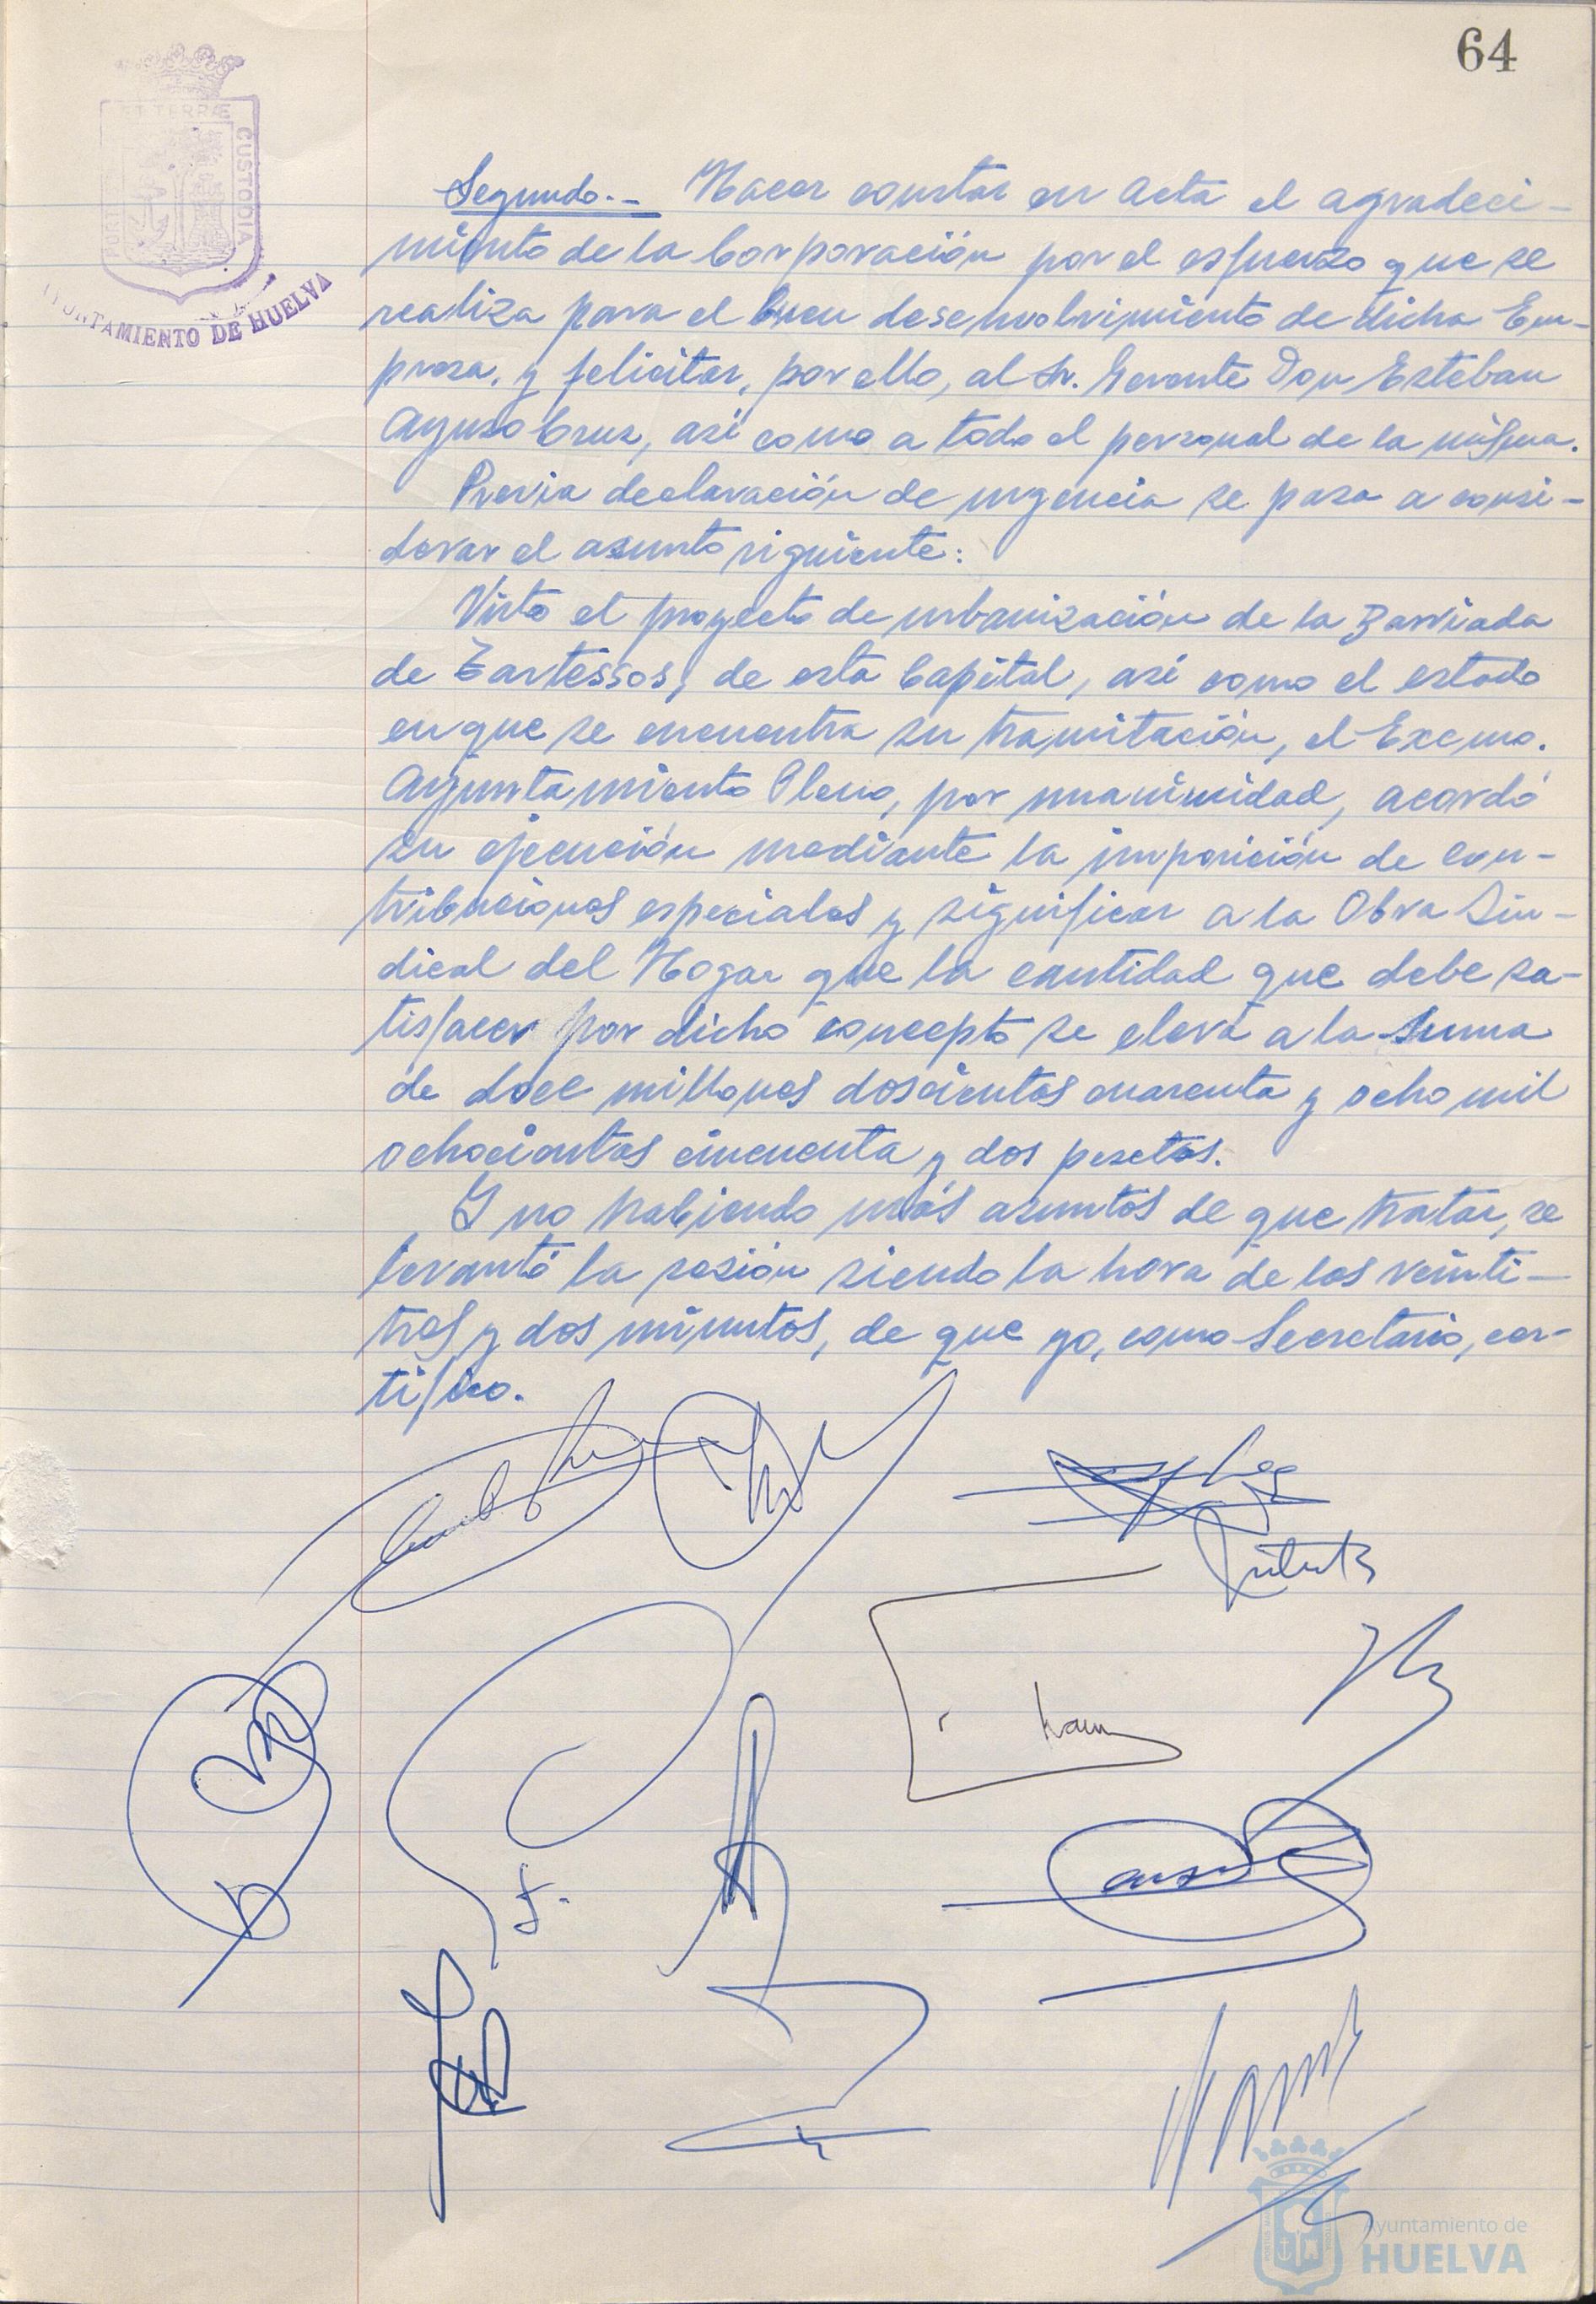 64
PORTUS
ET TERRÆ
CUSTODIA
AYUNTAMIENTO DE HUELVA
Segundo.- Hacer constar en Acta el agradeci-
miento de la Corporación por el esfuerzo que se
realiza para el buen desenvolvimiento de dicha Em-
presa, y felicitar, por ello, al Sr. Gerente Don Esteban
Ayuso Cruz, así como a todo el personal de la misma.
Previa declaración de urgencia se pasa a consi-
derar el asunto siguiente:
Visto el proyecto de urbanización de la Barriada
de Tartessos, de esta Capital, así como el estado
en que se encuentra su tramitación, el Excmo.
Ayuntamiento Pleno, por unanimidad, acordó
su ejecución mediante la imposición de con-
tribuciones especiales y significar a la Obra Sin-
dical del Hogar que la cantidad que debe sa-
tisfacer por dicho concepto se eleva a la suma
de doce millones doscientas cuarenta y ocho mil
ochocientas cincuenta y dos pesetas.
Y no habiendo más asuntos de que tratar, se
levantó la sesión siendo la hora de las veinti-
tres y dos minutos, de que yo, como Secretario, cer-
tifico.
Ayuntamiento de
HUELVA